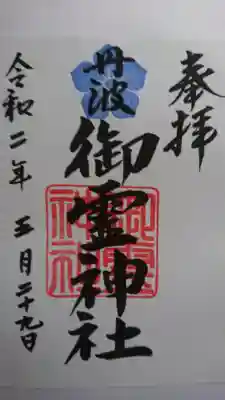 奉拝
丹波
御霊神社
御霊神社
令和二年 五月二十九日